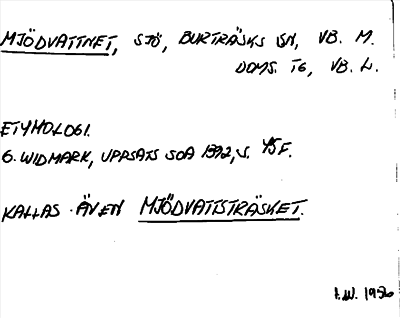 MJÖDVATTNET, SJÖ, BURTRÄSKS SN, VB. M.
DOMS. T6, VB. L.
ETYMOLOGI.
G. WIDMARK, UPPSATS SOA 1392, S. 45F.
KALLAS ÄVEN MJÖDVATTSTRÄSKET.
I.W. 1956